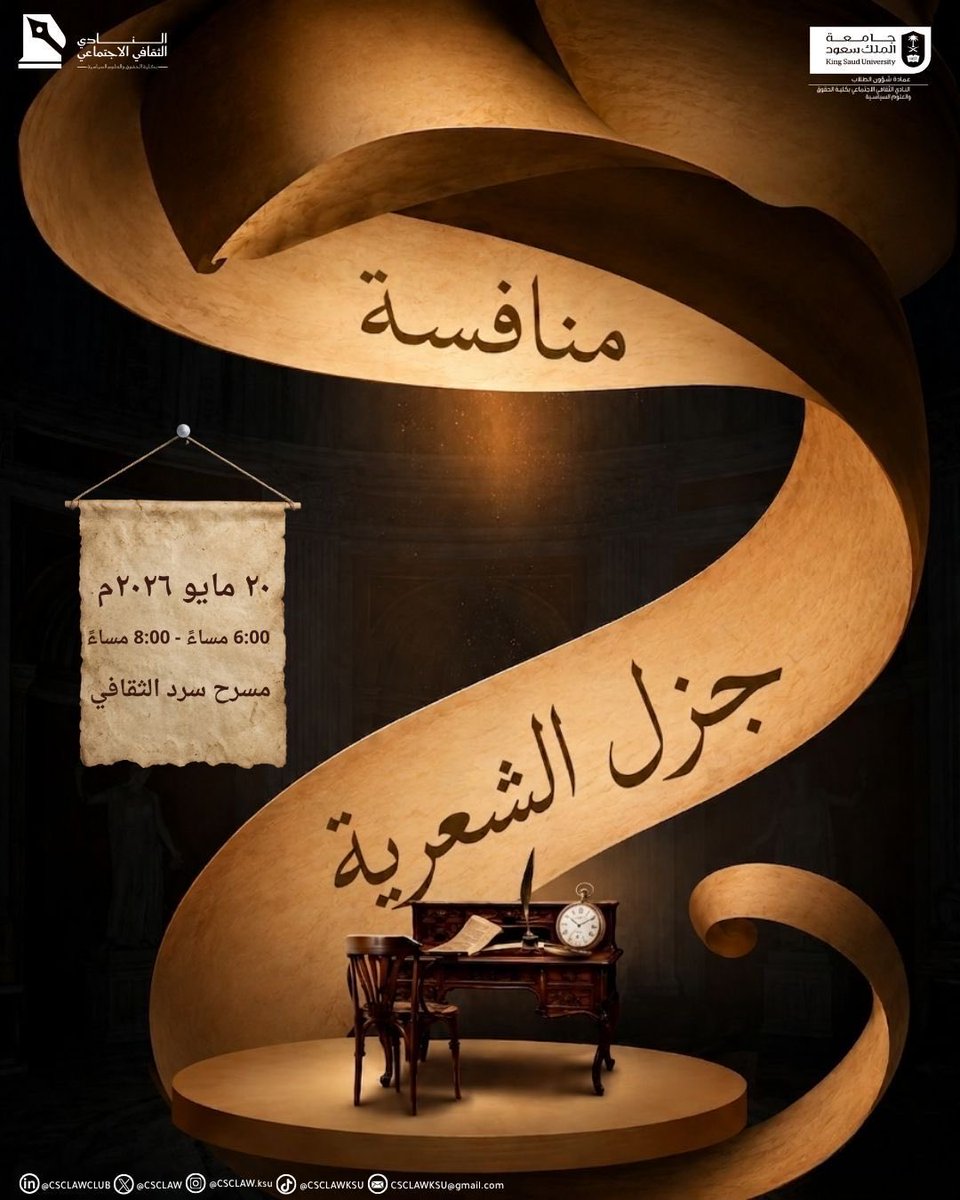 النادي
الثقافي الاجتماعي
بكلية الحقوق والعلوم السياسية
جامعة
الملك سعود
King Saud University
عمادة شؤون الطلاب
النادي الثقافي الاجتماعي بكلية الحقوق
والعلوم السياسية
منافسة
جزل الشعرية
٢٠ مايو ٢٠٢٦م
6:00 مساءً - 8:00 مساءً
مسرح سرد الثقافي
@CSCLAWCLUB @CSCLAW @CSCLAW.ksu @CSCLAWKSU CSCLAWKSU@gmail.com